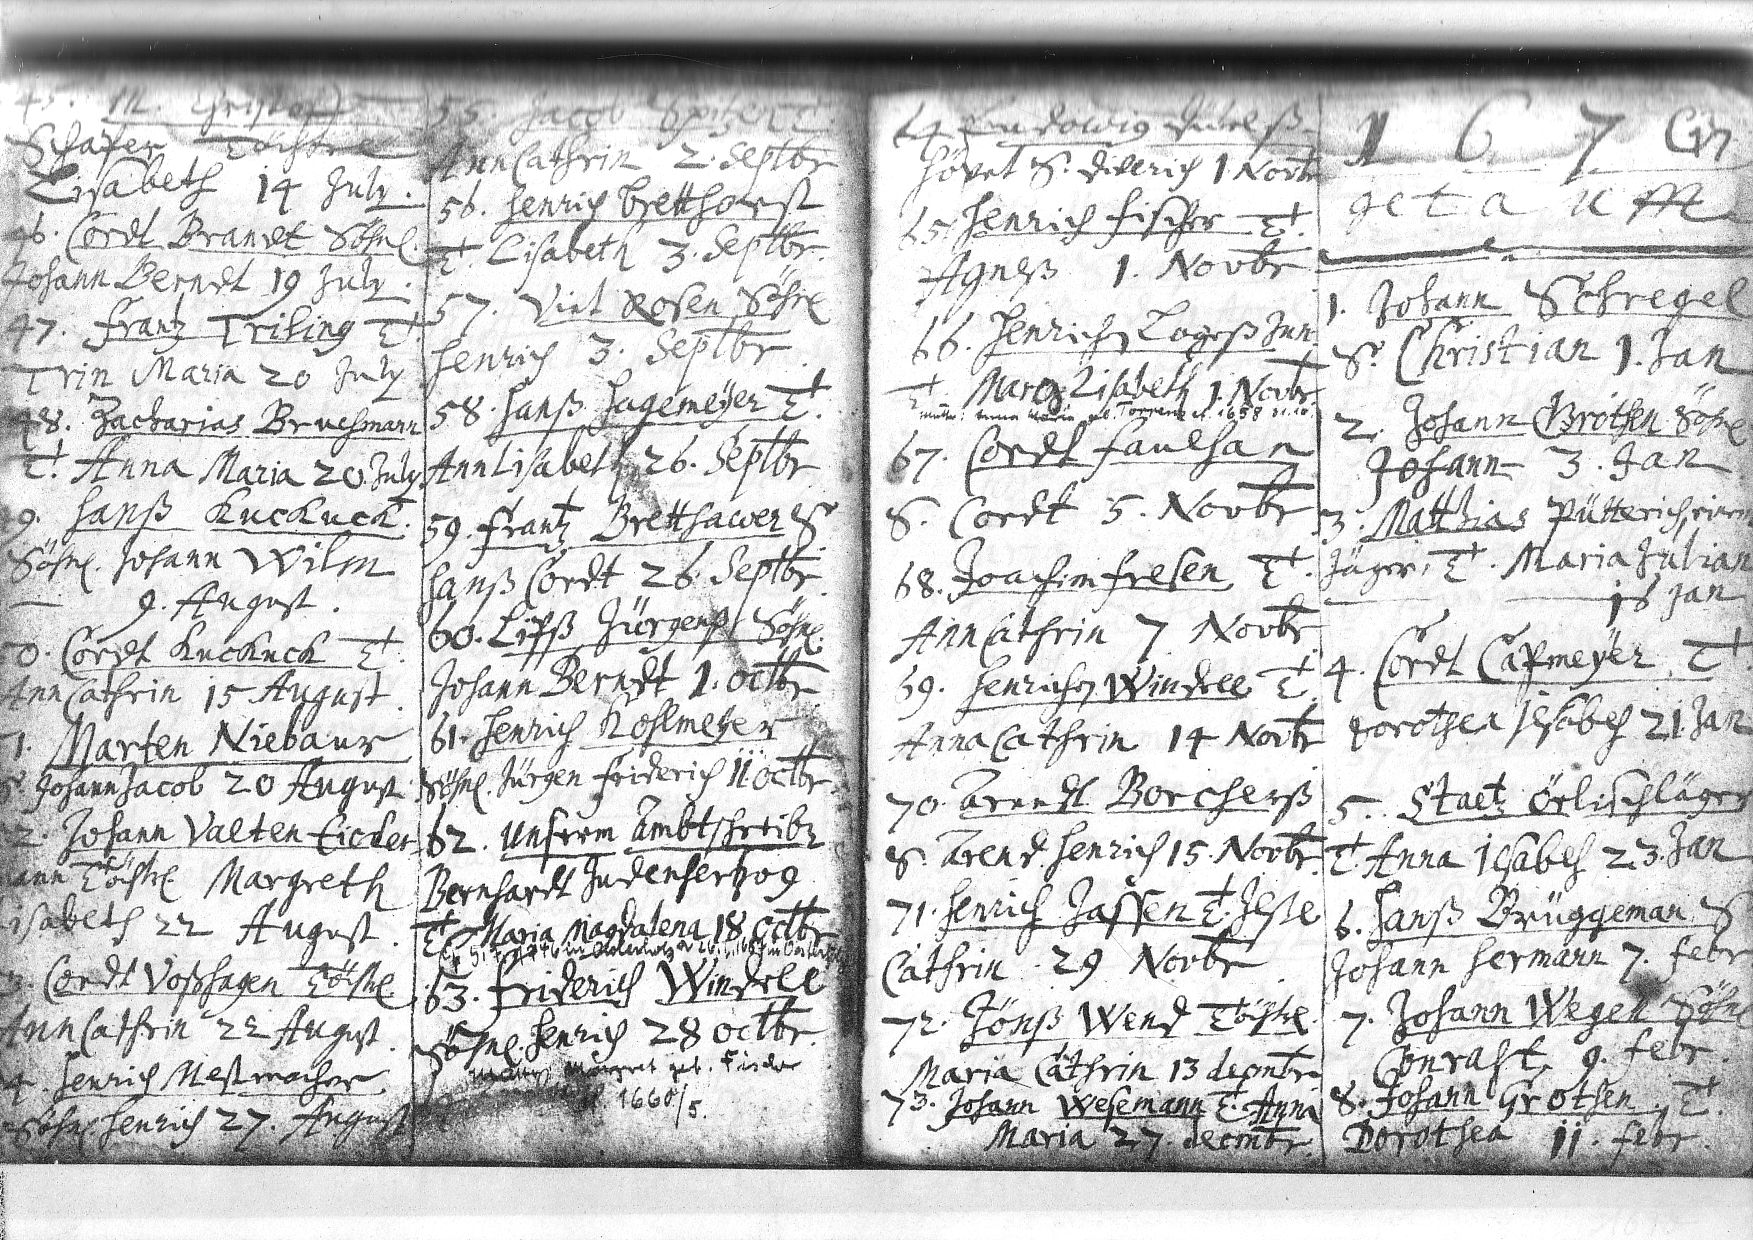 45. M. Christoff
Schäfer Töchtr.
Lisabeth 14 July.
46. Cordt Brandt Söhnl.
Johann Berndt 19 July.
47. Frantz Triling Tt.
Trin Maria 20 July
48. Zacharias Bruchmann
Tt. Anna Maria 20 July
9. Hanß Kuckuck.
Söhnl. Johann Wilm
9. August.
50. Cordt Kuckuck Tt.
Ann Cathrin 15 August.
51. Marten Niebaur
S. Johann Jacob 20 August
52. Johann Valten Eicker
mann Töchtl. Margreth
Lisabeth 22 August.
53. Cordt Voßhagen Töchtl.
Ann Cathrin 22 August.
54. Henrich Meßmacher
Söhnl. Henrich 27. August
55. Jacob Tt.
Ann Cathrin 2. Septbr
56. Henrich Bretthorst
Tt. Lisabeth 3. Septbr.
57. Vint Rosen Söhnl
Henrich 3. Septbr
58. Hanß Hagemeÿer Tt.
Ann Lisabeth 26. Septbr
59. Frantz Bretthawer S
Hanß Cordt 26. Septbr.
60. Jürgens Söhnl.
Johann Berndt 1. Octbr
61. Henrich Kohlmeÿer
Söhnl. Jürgen Friderich 11 Octbr.
62. Unserm Ambtschreibr
Bernhardt Judenhertzog
Tt. Maria Magdalena 18 Octbr
63. Friderich Windell
Söhnl. Henrich 28 Octbr.
Margret geb.
1660/5.
64 Ludowig
Hövet S. Diderich 1 Novbr
65. Henrich Fischer Tt.
Agneß 1. Novbr
66. Henrich Logeß Jun.
Tt. Marg Lisabeth 1. Novbr
1658
67. Cordt Faulhan
S. Cordt 5. Novbr
68. Joachim Fresen Tt.
Ann Cathrin 7 Novbr
69. Henrich Windell Tt.
Anna Cathrin 14 Novbr
70. Arendt Borcherß
S. Arend Henrich 15. Novbr.
71. Henrich Jassen Tt. Ilse
Cathrin 29 Novbr
72. Jönß Wend Töchtl.
Maria Cathrin 13 decmbr
73. Johann Wesemann Tt. Anna
Maria 27. decmbr.
1 6 7
getaufft
1. Johann Schregel
S. Christian 1. Jan
2. Johann Gröthen Söhnl
Johann 3. Jan
3. Matthias Pütterich,
Jäger, Tt. Maria Julian
16 Jan
4. Cordt Capmeÿer Tt
Dorothea Ilsabeh 21. Jan
5. Staetz Ölischläger
Tt. Anna Ilsabeh 23. Jan
6. Hanß Brüggeman S
Johann Hermann 7. Febr
7. Johann Wegen Söhnl
Conradt, 9. Febr.
8. Johann Grothen Tt.
Dorothea 11. Febr.